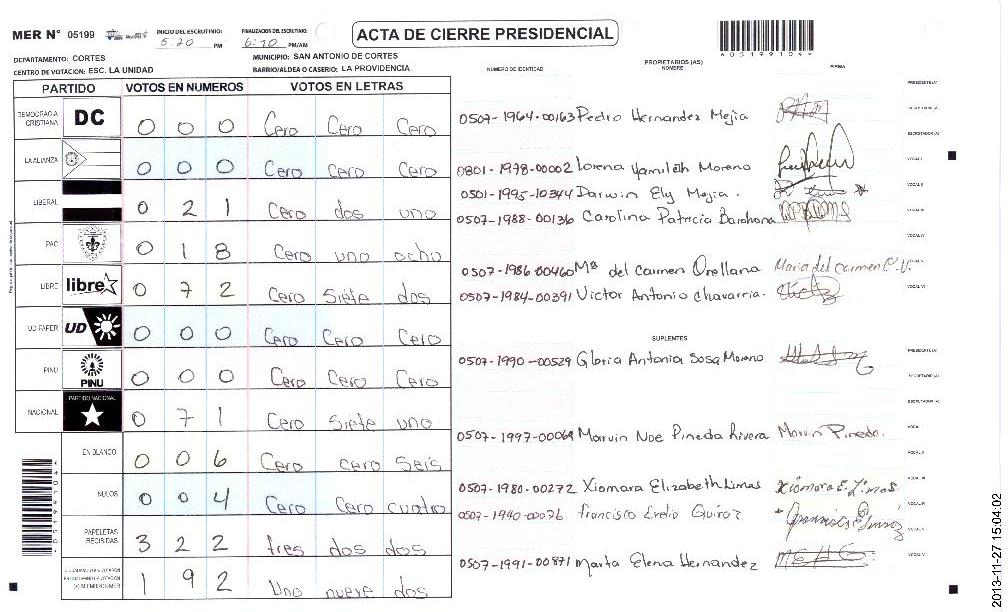 MER N° 05199
INICIO DEL ESCRUTINIO: 5:20 PM
FINALIZACION DEL ESCRUTINIO: 6:10 PM/AM
ACTA DE CIERRE PRESIDENCIAL
A05199104
DEPARTAMENTO: CORTES
MUNICIPIO: SAN ANTONIO DE CORTES
CENTRO DE VOTACION: ESC. LA UNIDAD
BARRIO/ALDEA O CASERIO: LA PROVIDENCIA
PARTIDO VOTOS EN NUMEROS VOTOS EN LETRAS
DEMOCRACIA CRISTIANA DC 0 0 0 Cero Cero Cero
LA ALIANZA 0 0 0 Cero Cero Cero
LIBERAL 0 2 1 Cero dos uno
PAC 0 1 8 Cero uno ocho
LIBRE libre 0 7 2 Cero Siete dos
UD FAPER UD 0 0 0 Cero Cero Cero
PINU PINU 0 0 0 Cero Cero Cero
NACIONAL PARTIDO NACIONAL 0 7 1 Cero Siete uno
EN BLANCO 0 0 6 Cero cero Seis
NULOS 0 0 4 Cero Cero cuatro
PAPELETAS RECIBIDAS 3 2 2 tres dos dos
1 9 2 Uno nueve dos
NUMERO DE IDENTIDAD
PROPIETARIOS (AS)
NOMBRE
FIRMA
PRESIDENTE (A)
0507-1964-00163 Pedro Hernandez Mejia
SECRETARIO (A)
ESCRUTADOR (A)
0801-1978-00002 Lorena Yamileth Moreno
VOCAL I
0501-1995-10344 Darwin Ely Mejia.
VOCAL II
0507-1988-00136 Carolina Patricia Barahona
VOCAL III
VOCAL IV
0507-1986-00460 Mª del Carmen Orellana Maria del Carmen C.U.
VOCAL V
0507-1984-00391 Victor Antonio chavarria.
VOCAL VI
SUPLENTES
0507-1990-00529 Gloria Antonia Sosa Moreno
PRESIDENTE (A)
SECRETARIO (A)
ESCRUTADOR (A)
0507-1997-00069 Marvin Noe Pineda Rivera Marvin Pineda.
VOCAL I
VOCAL II
0507-1980-00272 Xiomara Elizabeth Limas Xiomara E. Limas
VOCAL III
0507-1940-00076 francisco Evelio Quiroz
VOCAL IV
VOCAL V
0507-1991-00871 Marta Elena Hernandez
2013-11-27 15:04:02